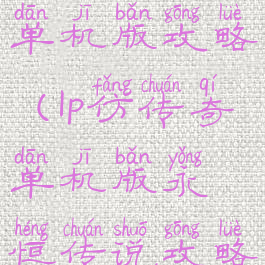 dān jī bǎn gōng lüè
单机版攻略
fǎng chuán qí
(lp仿传奇
dān jī bǎn yǒng
单机版永
héng chuán shuō gōng lüè
恒传说攻略